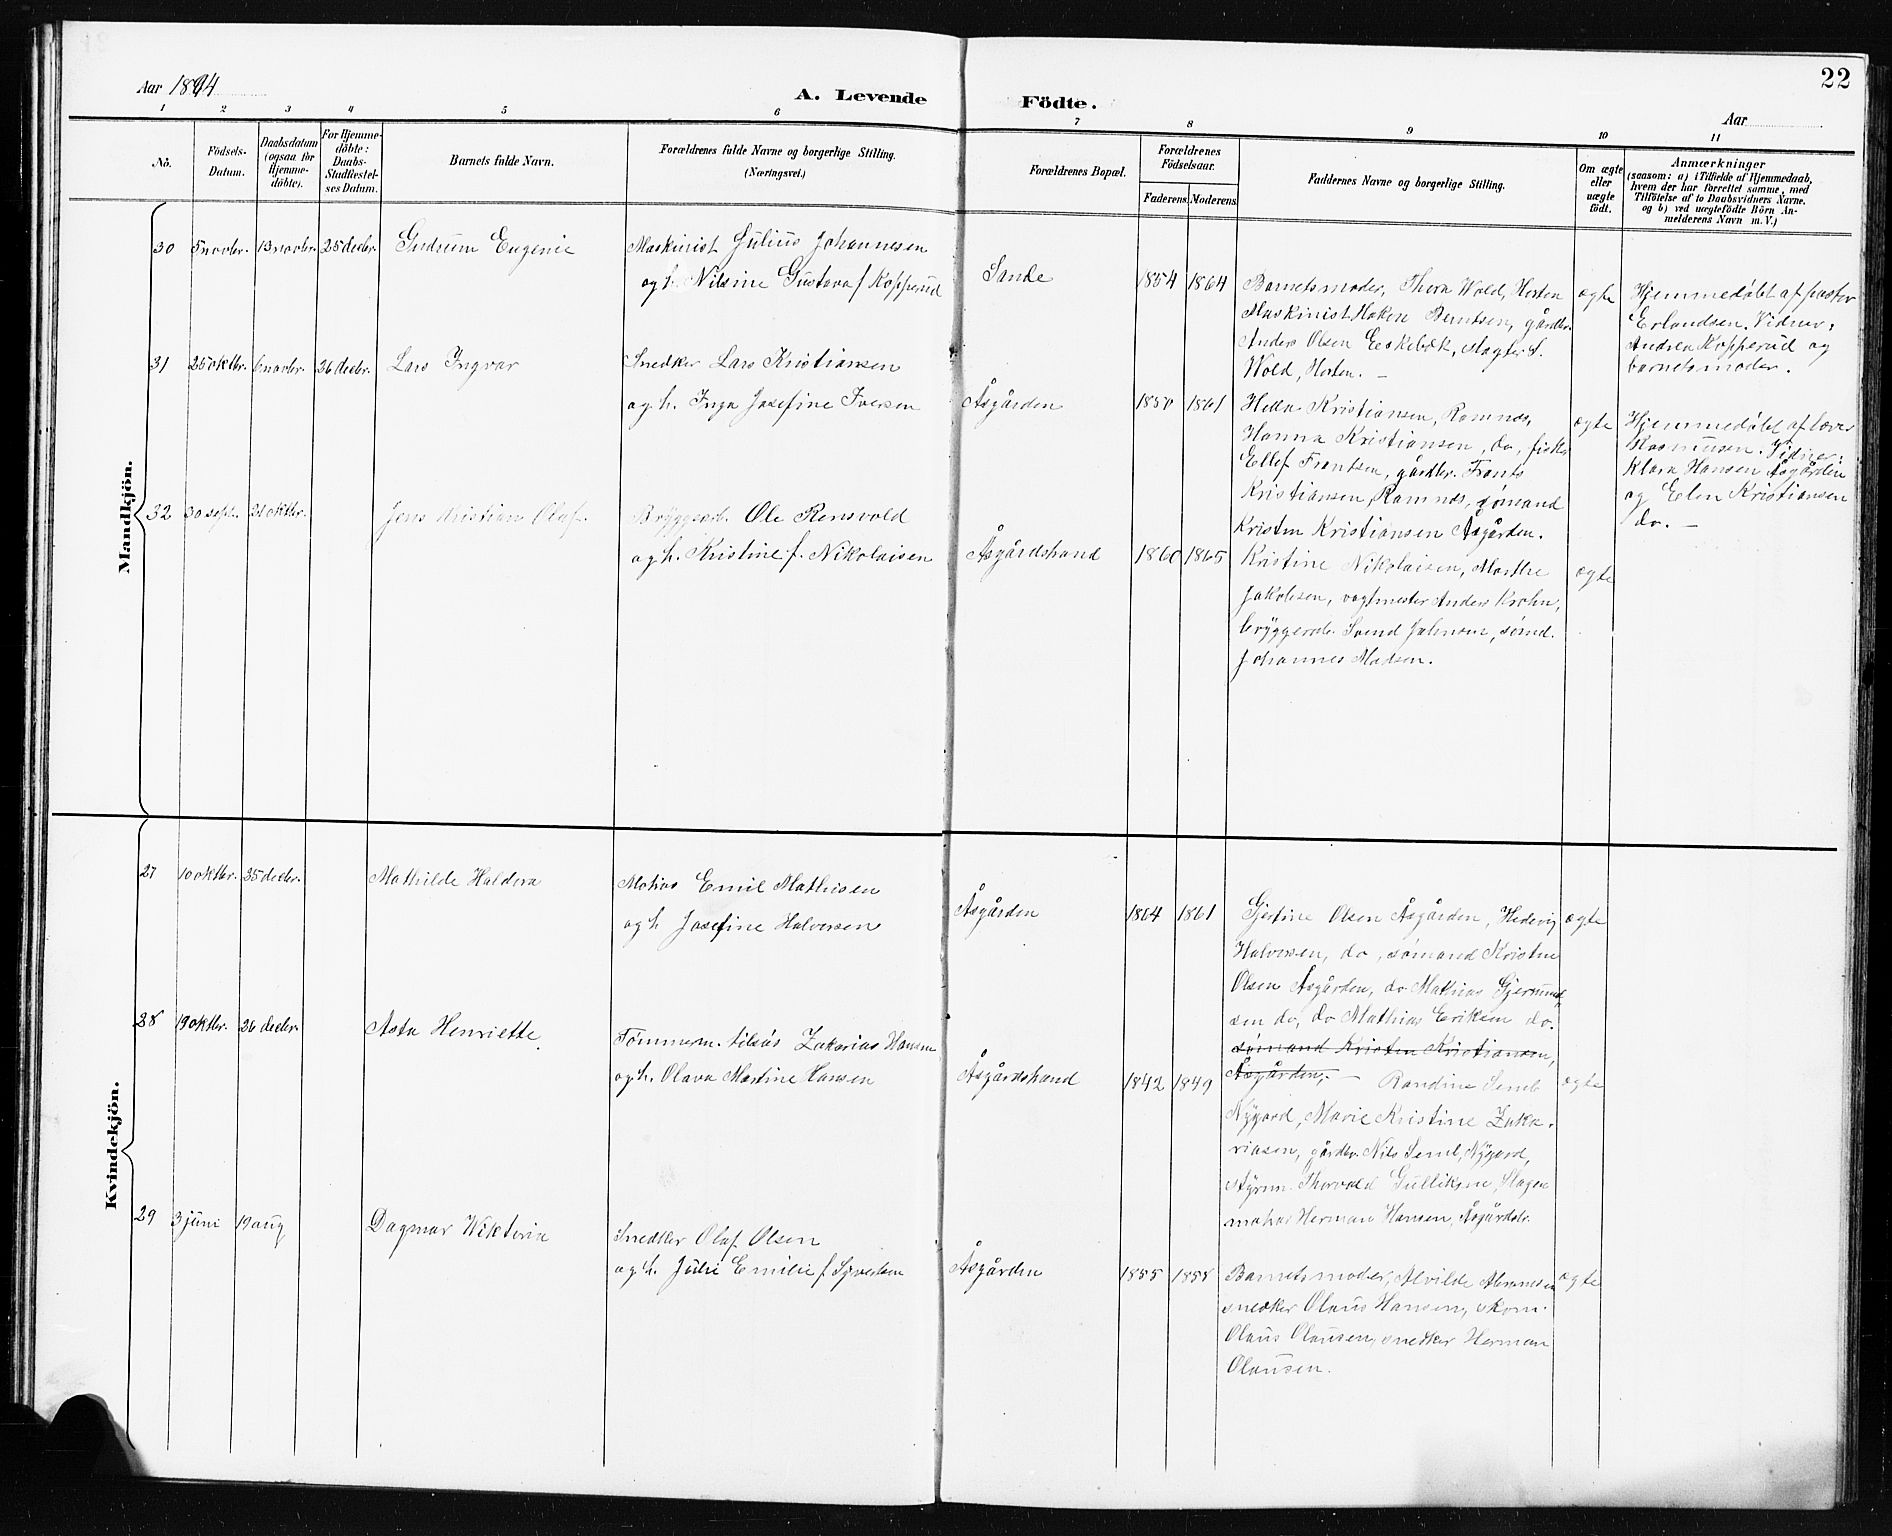 22
Aar 1894
A. Levende Födte.
Aar
1 2 3 4 5 6 7 8 9 10 11
No.
Födsels-
Datum.
Daabsdatum
(ogsaa for
Hjemme-
döbte).
For Hjemme-
döbte:
Daabs-
Stadfæstel-
ses Datum.
Barnets fulde Navn.
Forældrenes fulde Navne og borgerlige Stilling.
(Næringsvei.)
Forældrenes Bopæl.
Forældrenes
Födselsaar.
Faderens Moderens
Faddernes Navne og borgerlige Stilling.
Om ægte
eller
uægte
födt.
Anmærkninger
(saasom: a) i Tilfælde af Hjemmedaab,
hvem der har forrettet samme, med
Tilföielse af to Daabsvidners Navne.
og b) ved uægtefödte Börn An-
melderens Navn m. V.)
Mandkjön.
30 5 novbr. 13 novbr. 25 decbr. Gudrum Eugenie
Maskinist Julius Johannesen
og h. Nilsine Gustava f Kopperud
Sande 1854 1864
Barnets moder, Thora Wold, Horten
Maskinist Haken Berntsen, gårdbr.
Anders Olsen Eskebæk, slagter S.
Wold, Horten. –
ægte
Hjemmedøbt af pastor
Erlandsen. Vidner:
Andrea Kopperud og
barnets moder.
31 25 oktbr. 6 novbr. 26 decbr. Lars Ingvar
Snedker Lars Kristiansen
og h. Inga Josefine Iversen
Åsgården 1850 1861
Helen Kristiansen, Ramnæs,
Hanna Kristiansen, do, fisker
Ellef Frantsen, gårdbr. Frants
Kristiansen, Ramnæs, sømand
Kristen Kristiansen Åsgården.
ægte
Hjemmedøbt af lærer
Rasmussen. Vidner:
Klara Hansen Åsgården
og Elen Kristiansen
do. –
32 30 sept. 21 oktbr. Jens Kristian Olaf.
Bryggearb. Ole Rensvold
og h. Kristine f. Nikolaisen
Åsgårdstrand 1860 1865
Kristine Nikolaisen, Marthe
Jakobsen, vagtmester Anders Krohn,
bryggearb. Svend Johnsen, sømd.
Johannes Madsen.
ægte
Kvindekjön.
27 10 oktbr. 25 decbr. Mathilde Haldora
Matros Emil Mathisen
og h Josefine Halvorsen
Åsgården 1864 1861
Gjertine Olsen Åsgården, Hedevig
Halvorsen, do, sømand Kristen
Olsen Åsgården, do Mathias Gjermund
sen do, do Mathias Eriksen do.
sømand Kristen Kristiansen,
Åsgården, –
ægte
28 19 oktbr. 26 decbr. Asta Henriette.
Tømmerm. Nilsus Zakarias Hansen
og h. Olava Martine Hansen
Åsgårdstrand 1842 1849
Randine Semb
Nygard, Marie Kristine Zaka-
riasen, gårdbr. Nils Semb, Nygard,
styrm. Thorvald Gulliksen, Slagen
matros Herman Hansen, Åsgårdstr.
ægte
29 3 juni 19 aug Dagmar Wiktoria
Snedker Olaf Olsen
og h. Julie Emilie f Syvertsen
Åsgården 1855 1858
Barnets moder, Alvilde Abramsen
snedker Olaus Hansen, skom.
Olaus Olausen, snedker Herman
Olausen.
ægte